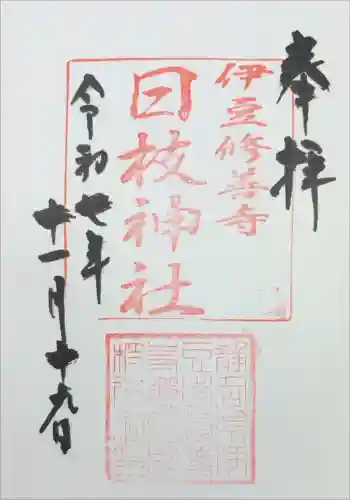 奉拝
伊豆修善寺
日枝神社
令和七年
十一月十九日